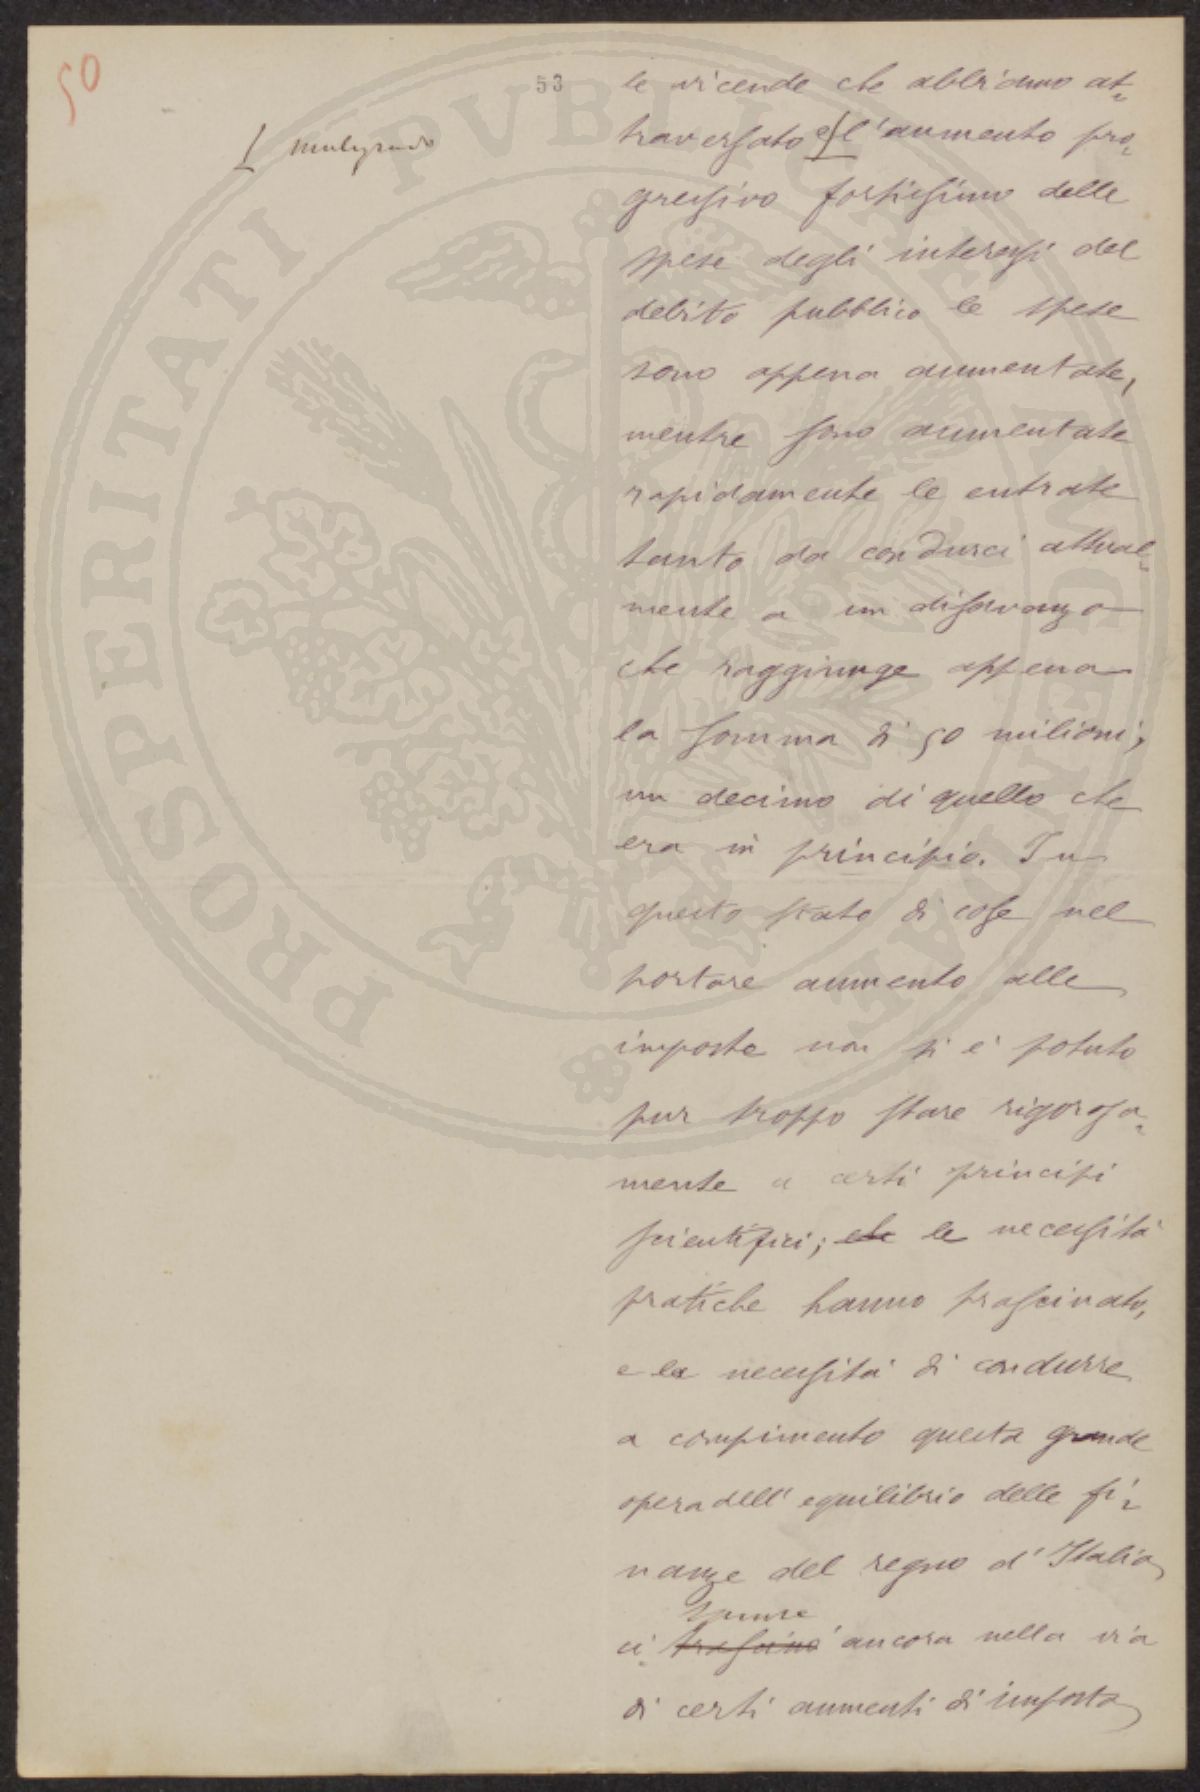 50
53
malgrado
le vicende che abbiamo at=
traversato e l'aumento pro=
gressivo fortissimo delle
spese degli interessi del
debito pubblico le spese
sono appena aumentate,
mentre sono aumentate
rapidamente le entrate
tanto da condurci attual=
mente a un disavanzo
che raggiunge appena
la somma di 50 milioni;
un decimo di quello che
era in principio. In
questo stato di cose nel
portare aumento alle
imposte non si è potuto
pur troppo stare rigorosa=
mente a certi principi
scientifici; che le necessità
pratiche hanno trascinato,
e la necessità di condurre
a compimento questa grande
opera dell'equilibrio delle fi=
nanze del regno d'Italia
spinse
ci trascinò ancora nella via
di certi aumenti di imposta
PROSPERITATI PVBLICAE AVGENDAE